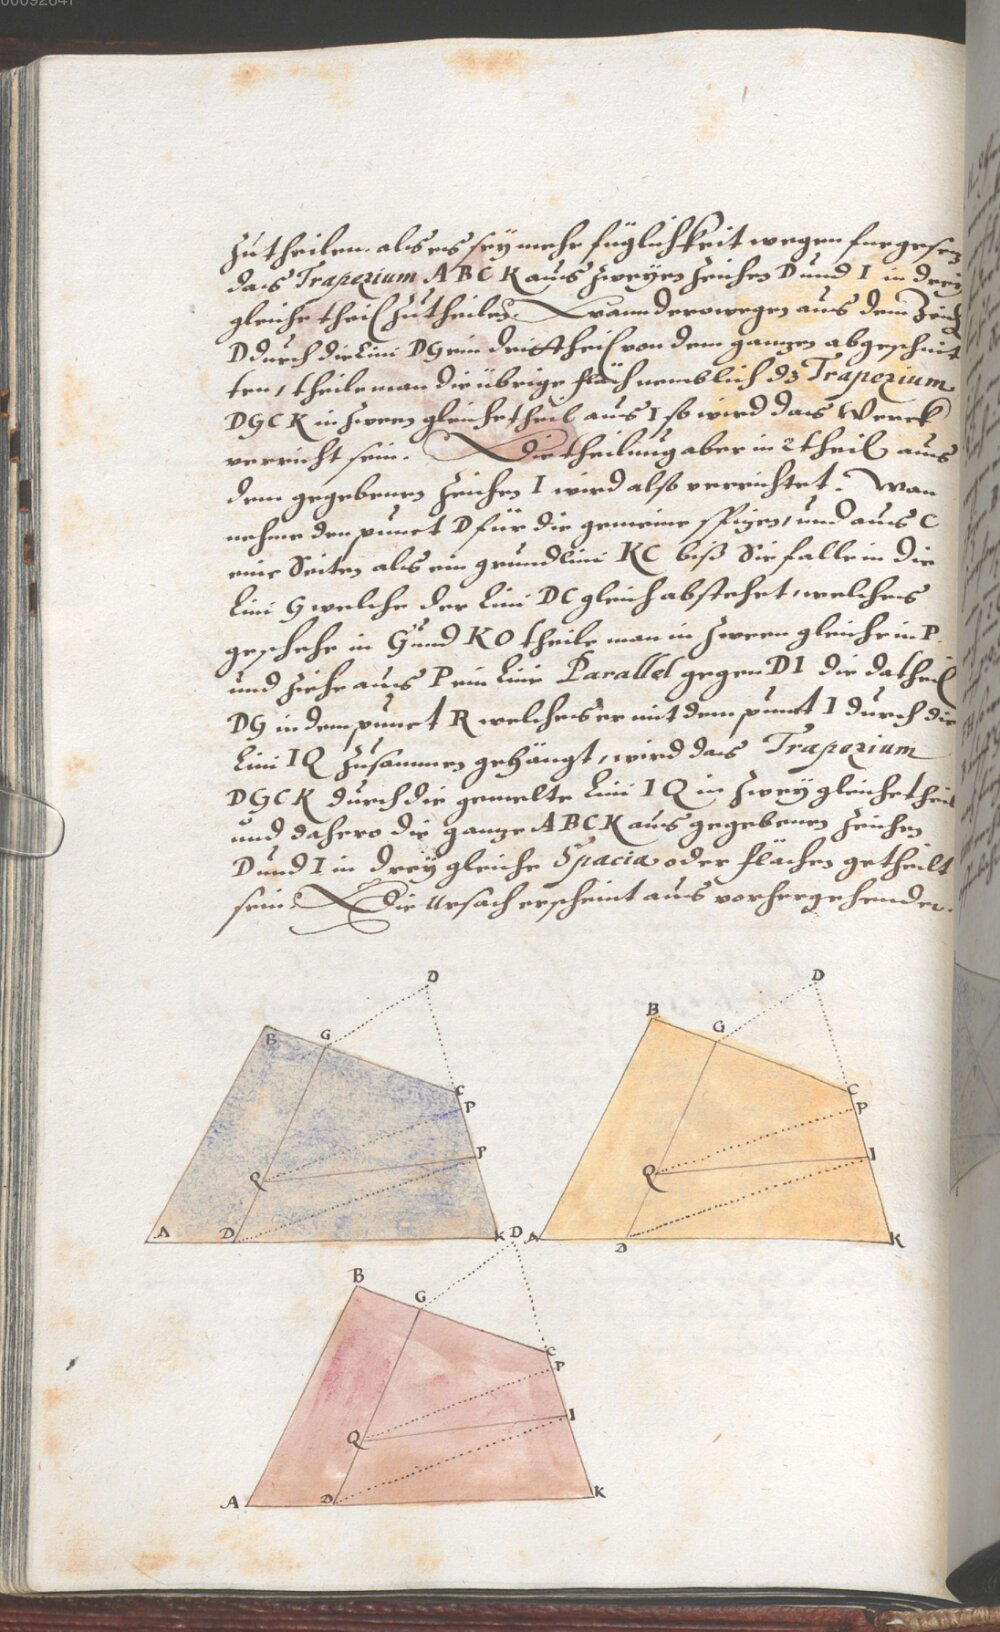 zutheilen. als es sey mehr füglichkeit wegen furgesetz
das Trapezium ABCK aus zweyen zeichen D und I in drey
gleiche theil zutheilen. Wann derowegen aus dem Zeich
D durch die Lini DG ein dritttheil von dem gantzen abgeschnit
ten, theile man die übrige fläch nemblich dz Trapezium
DGCK in zween gleiche theil aus I so wird das Werck
verricht sein. Die theilung aber in 2 theil aus
dem gegebenen zeichen I wird also verrichtet. Man
nehme den punct D für die gemeine spitzen, und aus C
eine Seiten als ein grundlini KC biß Sie falle in die
Lini G welche der Lini DC gleich abstehet, welches
geschehe in G und KO theile man in zween gleiche in P.
und ziehe aus P ein Linie Parallel gegen DI die da theil
DG in dem punct R welches er mit dem punct I durch die
Lini IQ zusammen gehängt, wird das Trapezium
DGCK durch die gemelte Lini IQ in zwey gleiche theil
und dahero die gantze ABCK aus gegebenen zeichen
D und I in drey gleiche Spacia oder flächen getheilt
sein. Die Ursach erscheint aus vorhergehenden.
D
B G
C
P
P
Q
A D K
D
B G
C
P
I
Q
A D K
D
B G
C
P
I
Q
A D K